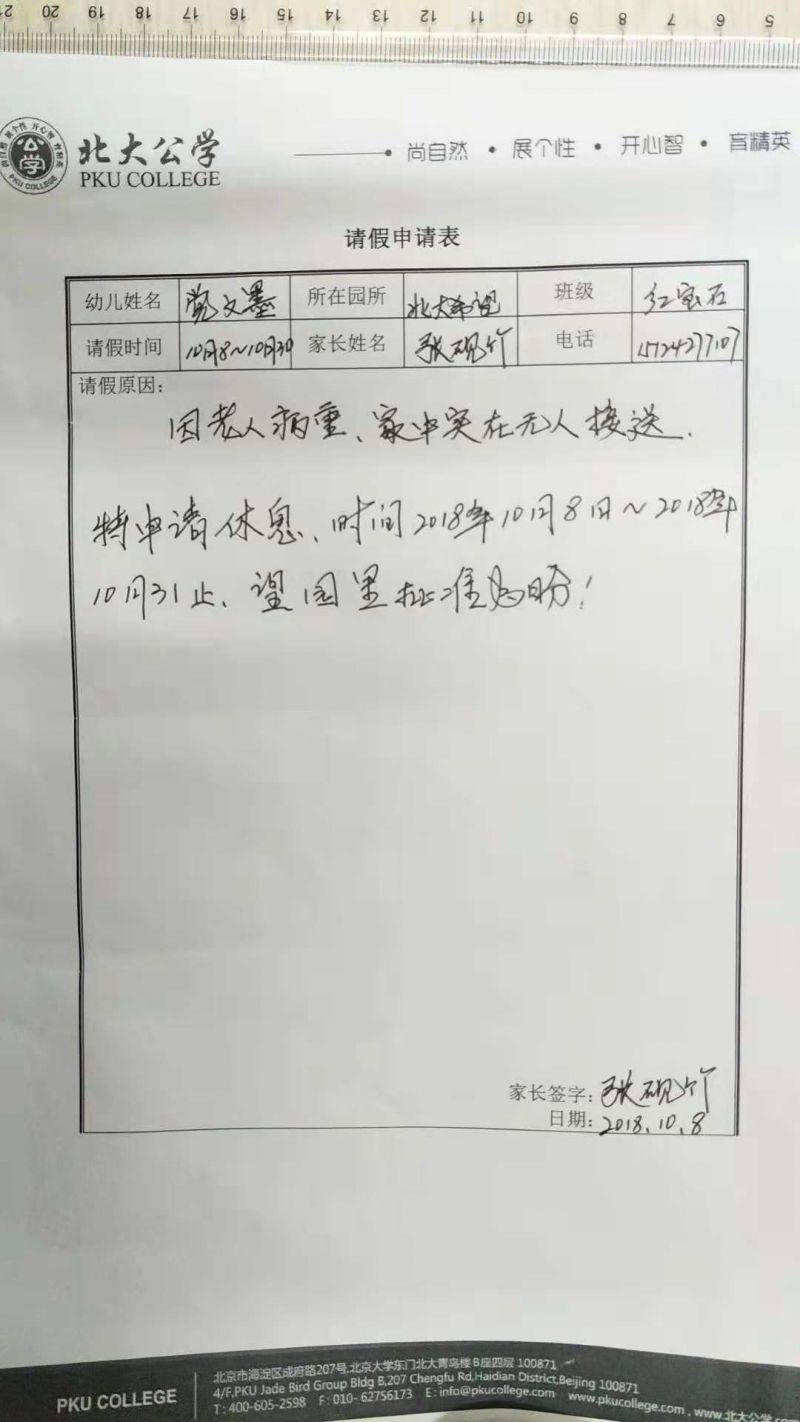 21 20 19 18 17 16 15 14 13 12 11 10 9 8 7 6 5
公学
PKU COLLEGE
北大公学
PKU COLLEGE
尚自然 • 展个性 • 开心智 • 育精英
请假申请表
幼儿姓名 党文墨 所在园所 北大希望 班级 红宝石
请假时间 10月8~10月30 家长姓名 张砚竹 电话 15124277107
请假原因:
因老人病重、家中实在无人接送.
特申请休息、时间2018年10月8日~2018年
10月31止、望园里批准为盼!
家长签字: 张砚竹
日期: 2018.10.8
PKU COLLEGE
北京市海淀区成府路207号,北京大学东门北大青鸟楼B座四层 100871
4/F,PKU Jade Bird Group Bldg B,207 Chengfu Rd,Haidian District,Beijing 100871
T : 400-605-2598 F : 010- 62756173 E : info@pkucollege.com www.pkucollege.com , www.北大公学